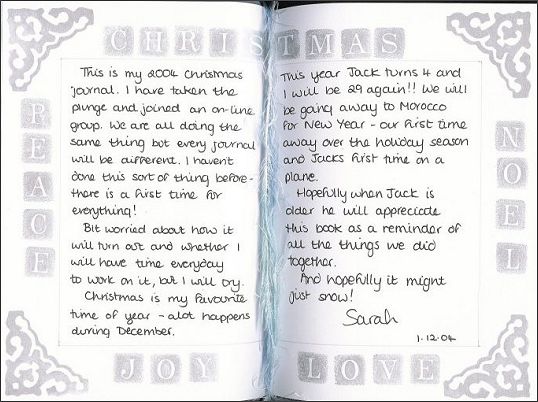 CHRISTMAS
PEACE
This is my 2004 Christmas
journal. I have taken the
plunge and joined an on-line
group. We are all doing the
same thing but every journal
will be different. I havent
done this sort of thing before-
there is a first time for
everything!
Bit worried about how it
will turn out and whether I
will have time everyday
to work on it, but I will try.
Christmas is my favourite
time of year - alot happens
during December.
JOY
This year Jack turns 4 and
I will be 29 again!! We will
be going away to Morocco
for New Year - our first time
away over the holiday season
and Jacks first time on a
plane.
Hopefully when Jack is
older he will appreciate
this book as a reminder of
all the things we did
together.
And hopefully it might
just snow!
Sarah
1.12.04
NOEL
LOVE